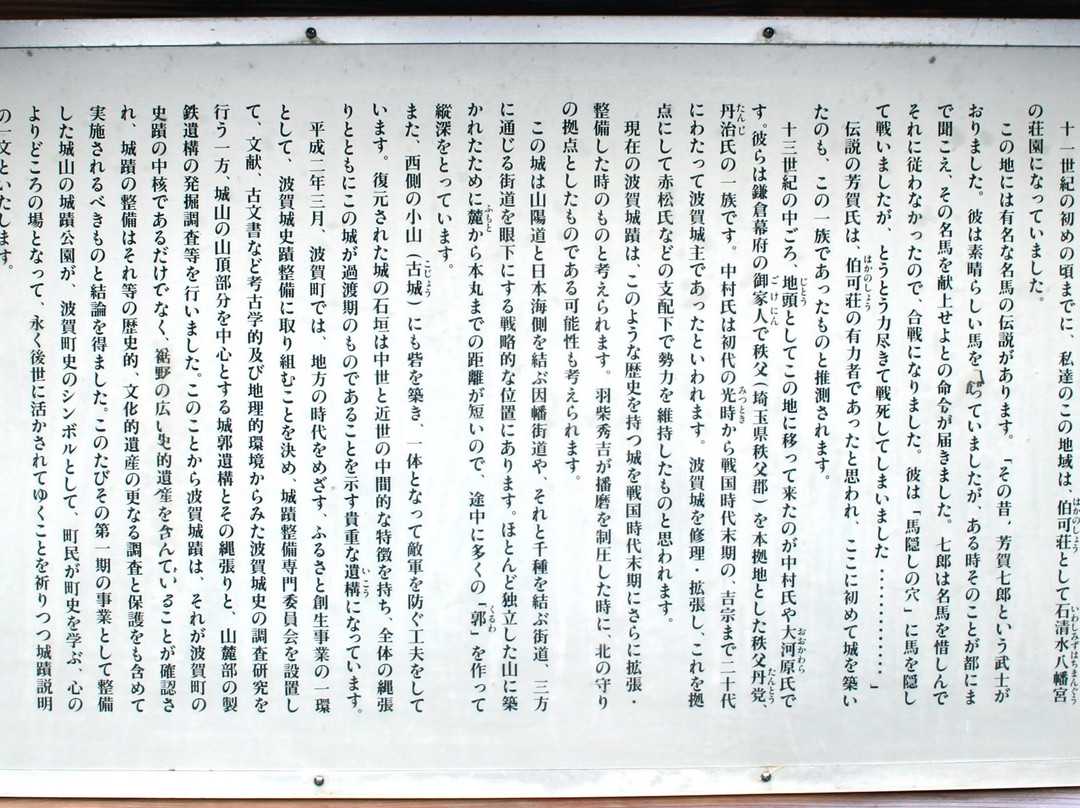 十一世紀の初めの頃までに、私達のこの地域は、伯可荘として石清水八幡宮
の荘園になっていました。
この地には有名な名馬の伝説があります。「その昔，芳賀七郎という武士が
おりました。彼は素晴らしい馬を飼っていましたが、ある時そのことが都にま
で聞こえ、その名馬を献上せよとの命令が届きました。七郎は名馬を惜しんで
それに従わなかったので、合戦になりました。彼は「馬隠しの穴」に馬を隠し
て戦いましたが、とうとう力尽きて戦死してしまいました・・・・・・・・・・・・・」
伝説の芳賀氏は、伯可荘の有力者であったと思われ、ここに初めて城を築い
たのも、この一族であったものと推測されます。
十三世紀の中ごろ、地頭としてこの地に移って来たのが中村氏や大河原氏で
す。彼らは鎌倉幕府の御家人で秩父（埼玉県秩父郡）を本拠地とした秩父丹党、
丹治氏の一族です。中村氏は初代の光時から戦国時代末期の、吉宗まで二十代
にわたって波賀城主であったといわれます。波賀城を修理・拡張し、これを拠
点にして赤松氏などの支配下で勢力を維持したものと思われます。
現在の波賀城蹟は、このような歴史を持つ城を戦国時代末期にさらに拡張・
整備した時のものと考えられます。羽柴秀吉が播磨を制圧した時に、北の守り
の拠点としたものである可能性も考えられます。
この城は山陽道と日本海側を結ぶ因幡街道や、それと千種を結ぶ街道、三方
に通じる街道を眼下にする戦略的な位置にあります。ほとんど独立した山に築
かれたために麓から本丸までの距離が短いので、途中に多くの「郭」を作って
縦深をとっています。
また、西側の小山（古城）にも砦を築き、一体となって敵軍を防ぐ工夫をして
います。復元された城の石垣は中世と近世の中間的な特徴を持ち、全体の縄張
りとともにこの城が過渡期のものであることを示す貴重な遺構になっています。
平成二年三月、波賀町では、地方の時代をめざす、ふるさと創生事業の一環
として、波賀城史蹟整備に取り組むことを決め、城蹟整備専門委員会を設置し
て、文献、古文書など考古学的及び地理的環境からみた波賀城史の調査研究を
行う一方、城山の山頂部分を中心とする城郭遺構とその縄張りと、山麓部の製
鉄遺構の発掘調査等を行いました。このことから波賀城蹟は、それが波賀町の
史蹟の中核であるだけでなく、裾野の広い史的遺産を含んでいることが確認さ
れ、城蹟の整備はそれ等の歴史的、文化的遺産の更なる調査と保護をも含めて
実施されるべきものと結論を得ました。このたびその第一期の事業として整備
した城山の城蹟公園が、波賀町史のシンボルとして、町民が町史を学ぶ、心の
よりどころの場となって、永く後世に活かされてゆくことを祈りつつ城蹟説明
の一文といたします。